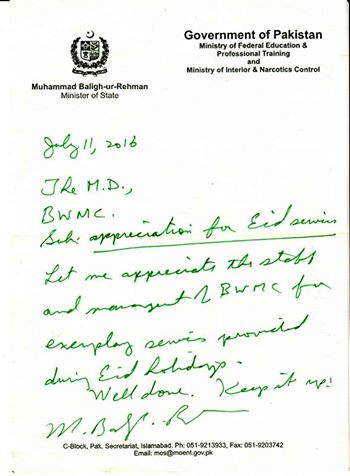 Government of Pakistan
Ministry of Federal Education &
Professional Training
and
Ministry of Interior & Narcotics Control
Muhammad Baligh-ur-Rehman
Minister of State
July 11, 2016
The M.D.,
BWMC.
Sub: appreciation for Eid servics
Let me appreciate the staff
and managent of BWMC for
exemplay servics provided
during Eid holidays.
Well done. Keep it up!
M. Baligh-R
C-Block, Pak. Secretariat, Islamabad. Ph: 051-9213933, Fax: 051-9203742
Email: mos@moent.gov.pk